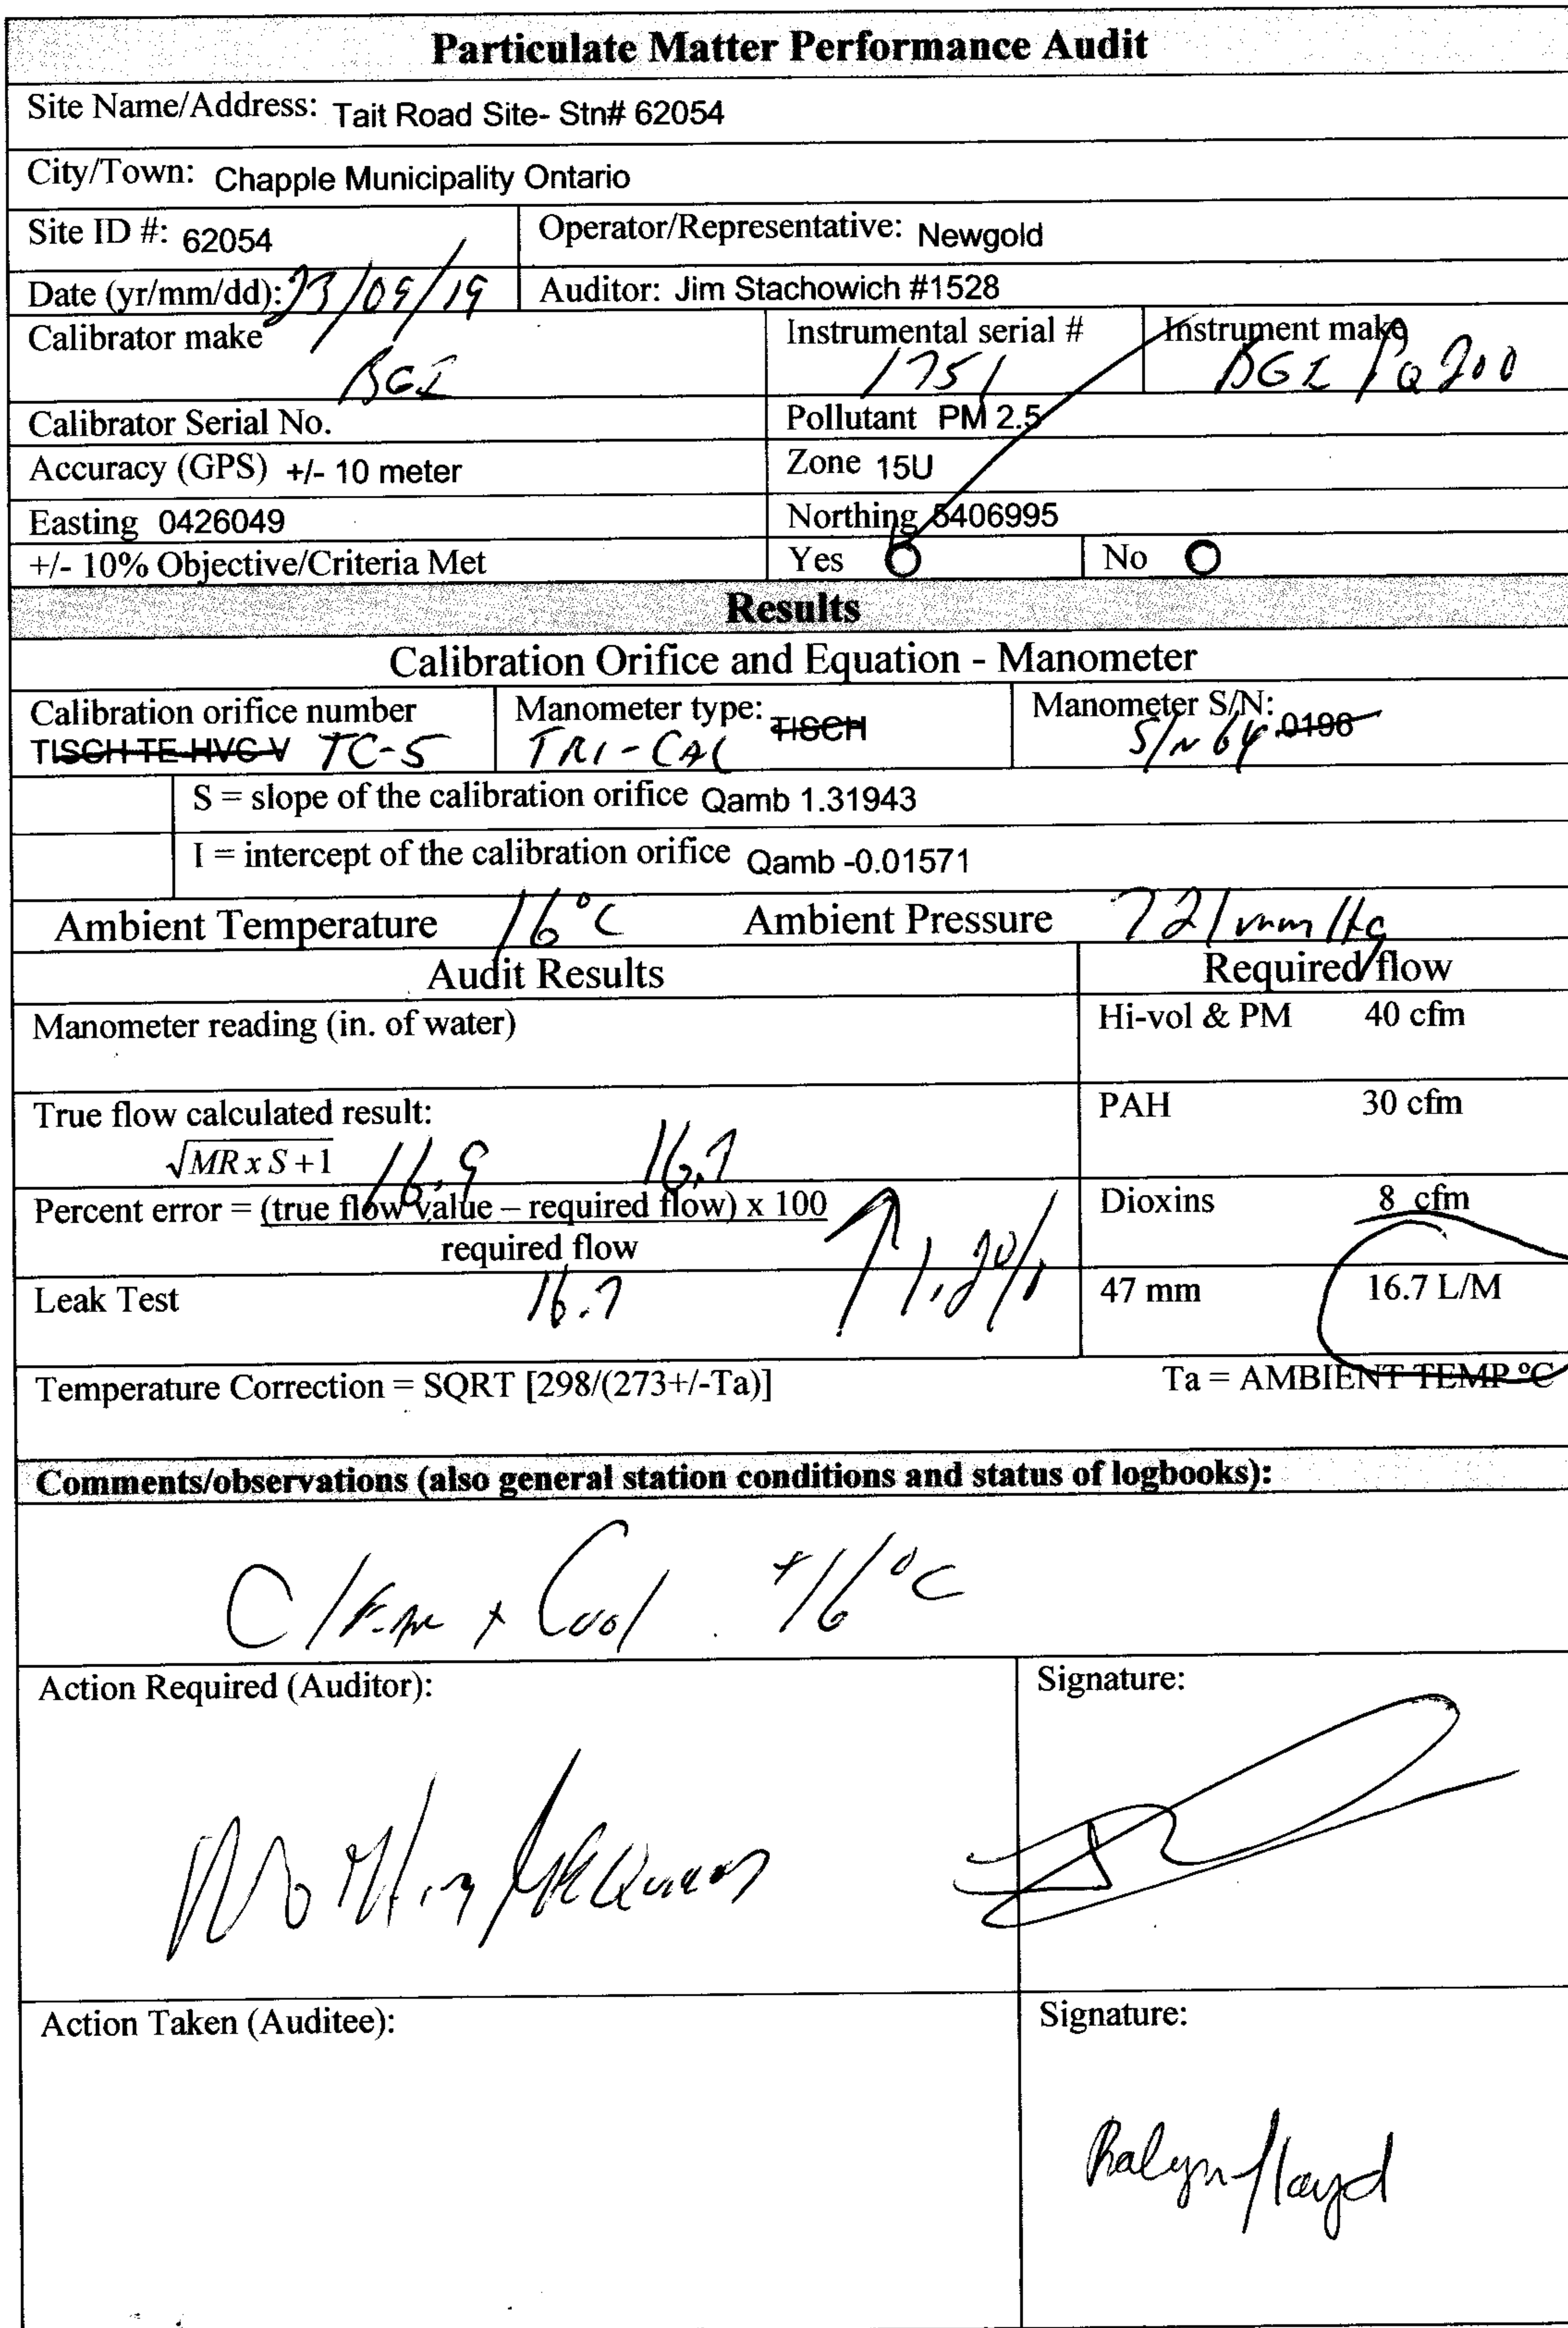 Particulate Matter Performance Audit
Site Name/Address: Tait Road Site- Stn# 62054
City/Town: Chapple Municipality Ontario
Site ID #: 62054 Operator/Representative: Newgold
Date (yr/mm/dd): 23/09/19 Auditor: Jim Stachowich #1528
Calibrator make BGI Instrumental serial # 1751 Instrument make BGI PQ 200
Calibrator Serial No. Pollutant PM 2.5
Accuracy (GPS) +/- 10 meter Zone 15U
Easting 0426049 Northing 5406995
+/- 10% Objective/Criteria Met Yes No
Results
Calibration Orifice and Equation - Manometer
Calibration orifice number Manometer type: TISCH Manometer S/N: 0196
TISCH TE-HVC-V TC-5 TRI-CAL S/N 64
S = slope of the calibration orifice Qamb 1.31943
I = intercept of the calibration orifice Qamb -0.01571
Ambient Temperature 16°C Ambient Pressure 721 mm Hg
Audit Results Required flow
Manometer reading (in. of water) Hi-vol & PM 40 cfm
True flow calculated result: PAH 30 cfm
√MR x S + 1 16.9 16.7
Percent error = (true flow value – required flow) x 100 Dioxins 8 cfm
required flow 1.2%
Leak Test 16.7 47 mm 16.7 L/M
Temperature Correction = SQRT [298/(273+/-Ta)] Ta = AMBIENT TEMP ºC
Comments/observations (also general station conditions and status of logbooks):
Cool +16°C
Action Required (Auditor): Signature:
Nothing
Action Taken (Auditee): Signature: